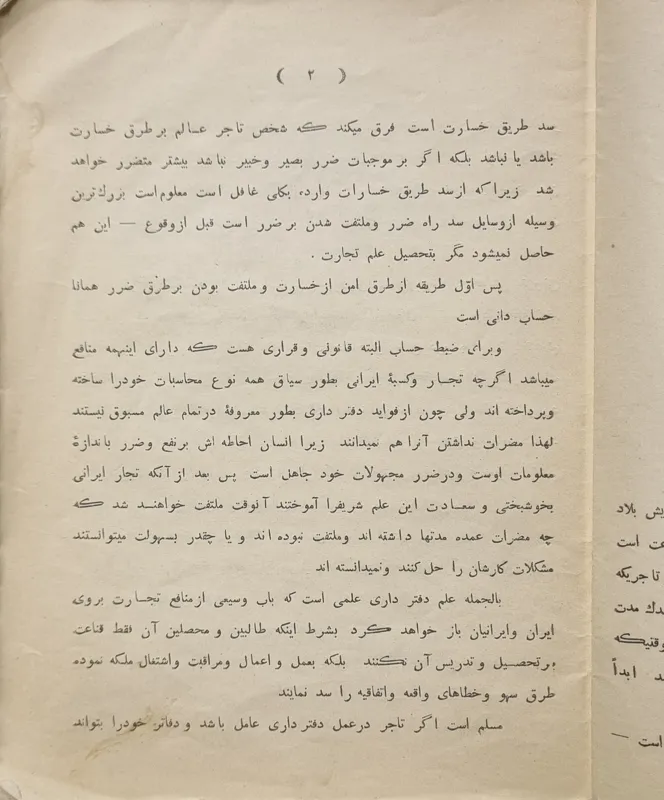 ( ٢ )
سد طریق خسارت است فرق میکند که شخص تاجر عالم بر طرق خسارت
باشد یا نباشد بلکه اگر بر موجبات ضرر بصیر وخبیر نباشد بیشتر متضرر خواهد
شد زیرا که از سد طریق خسارات وارده بکلی غافل است معلوم است بزرك ترین
وسیله از وسایل سد راه ضرر وملتفت شدن بر ضرر است قبل از وقوع — این هم
حاصل نمیشود مگر بتحصیل علم تجارت .
پس اوّل طریقه از طرق امن از خسارت وملتفت بودن بر طرق ضرر همانا
حساب دانی است
وبرای ضبط حساب البته قانونی وقراری هست که دارای اینهمه منافع
میباشد اگر چه تجار وکسبهٔ ایرانی بطور سیاق همه نوع محاسبات خودرا ساخته
وپرداخته اند ولی چون از فواید دفتر داری بطور معروفهٔ در تمام عالم مسبوق نیستند
لهذا مضرات نداشتن آنرا هم نمیدانند زیرا انسان احاطه اش بر نفع وضرر باندازهٔ
معلومات اوست ودر ضرر مجهولات خود جاهل است پس بعد از آنکه تجار ایرانی
بخوشبختی وسعادت این علم شریفرا آموختند آنوقت ملتفت خواهند شد که
چه مضرات عمده مدتها داشته اند وملتفت نبوده اند و یا چقدر بسهولت میتوانستند
مشکلات کارشان را حل کنند ونمیدانسته اند
بالجمله علم دفتر داری علمی است که باب وسیعی از منافع تجارت بروی
ایران وایرانیان باز خواهد کرد بشرط اینکه طالبین و محصلین آن فقط قناعت
بر تحصیل و تدریس آن نکنند بلکه بعمل واعمال ومراقبت واشتغال ملکه نموده
طرق سهو وخطاهای واقعه واتفاقیه را سد نمایند
مسلم است اگر تاجر در عمل دفتر داری عامل باشد و دفاتر خودرا بتواند
یش بلاد
ت است
تاجریکه
دك مدت
وقتیکه
د ابداً
است —